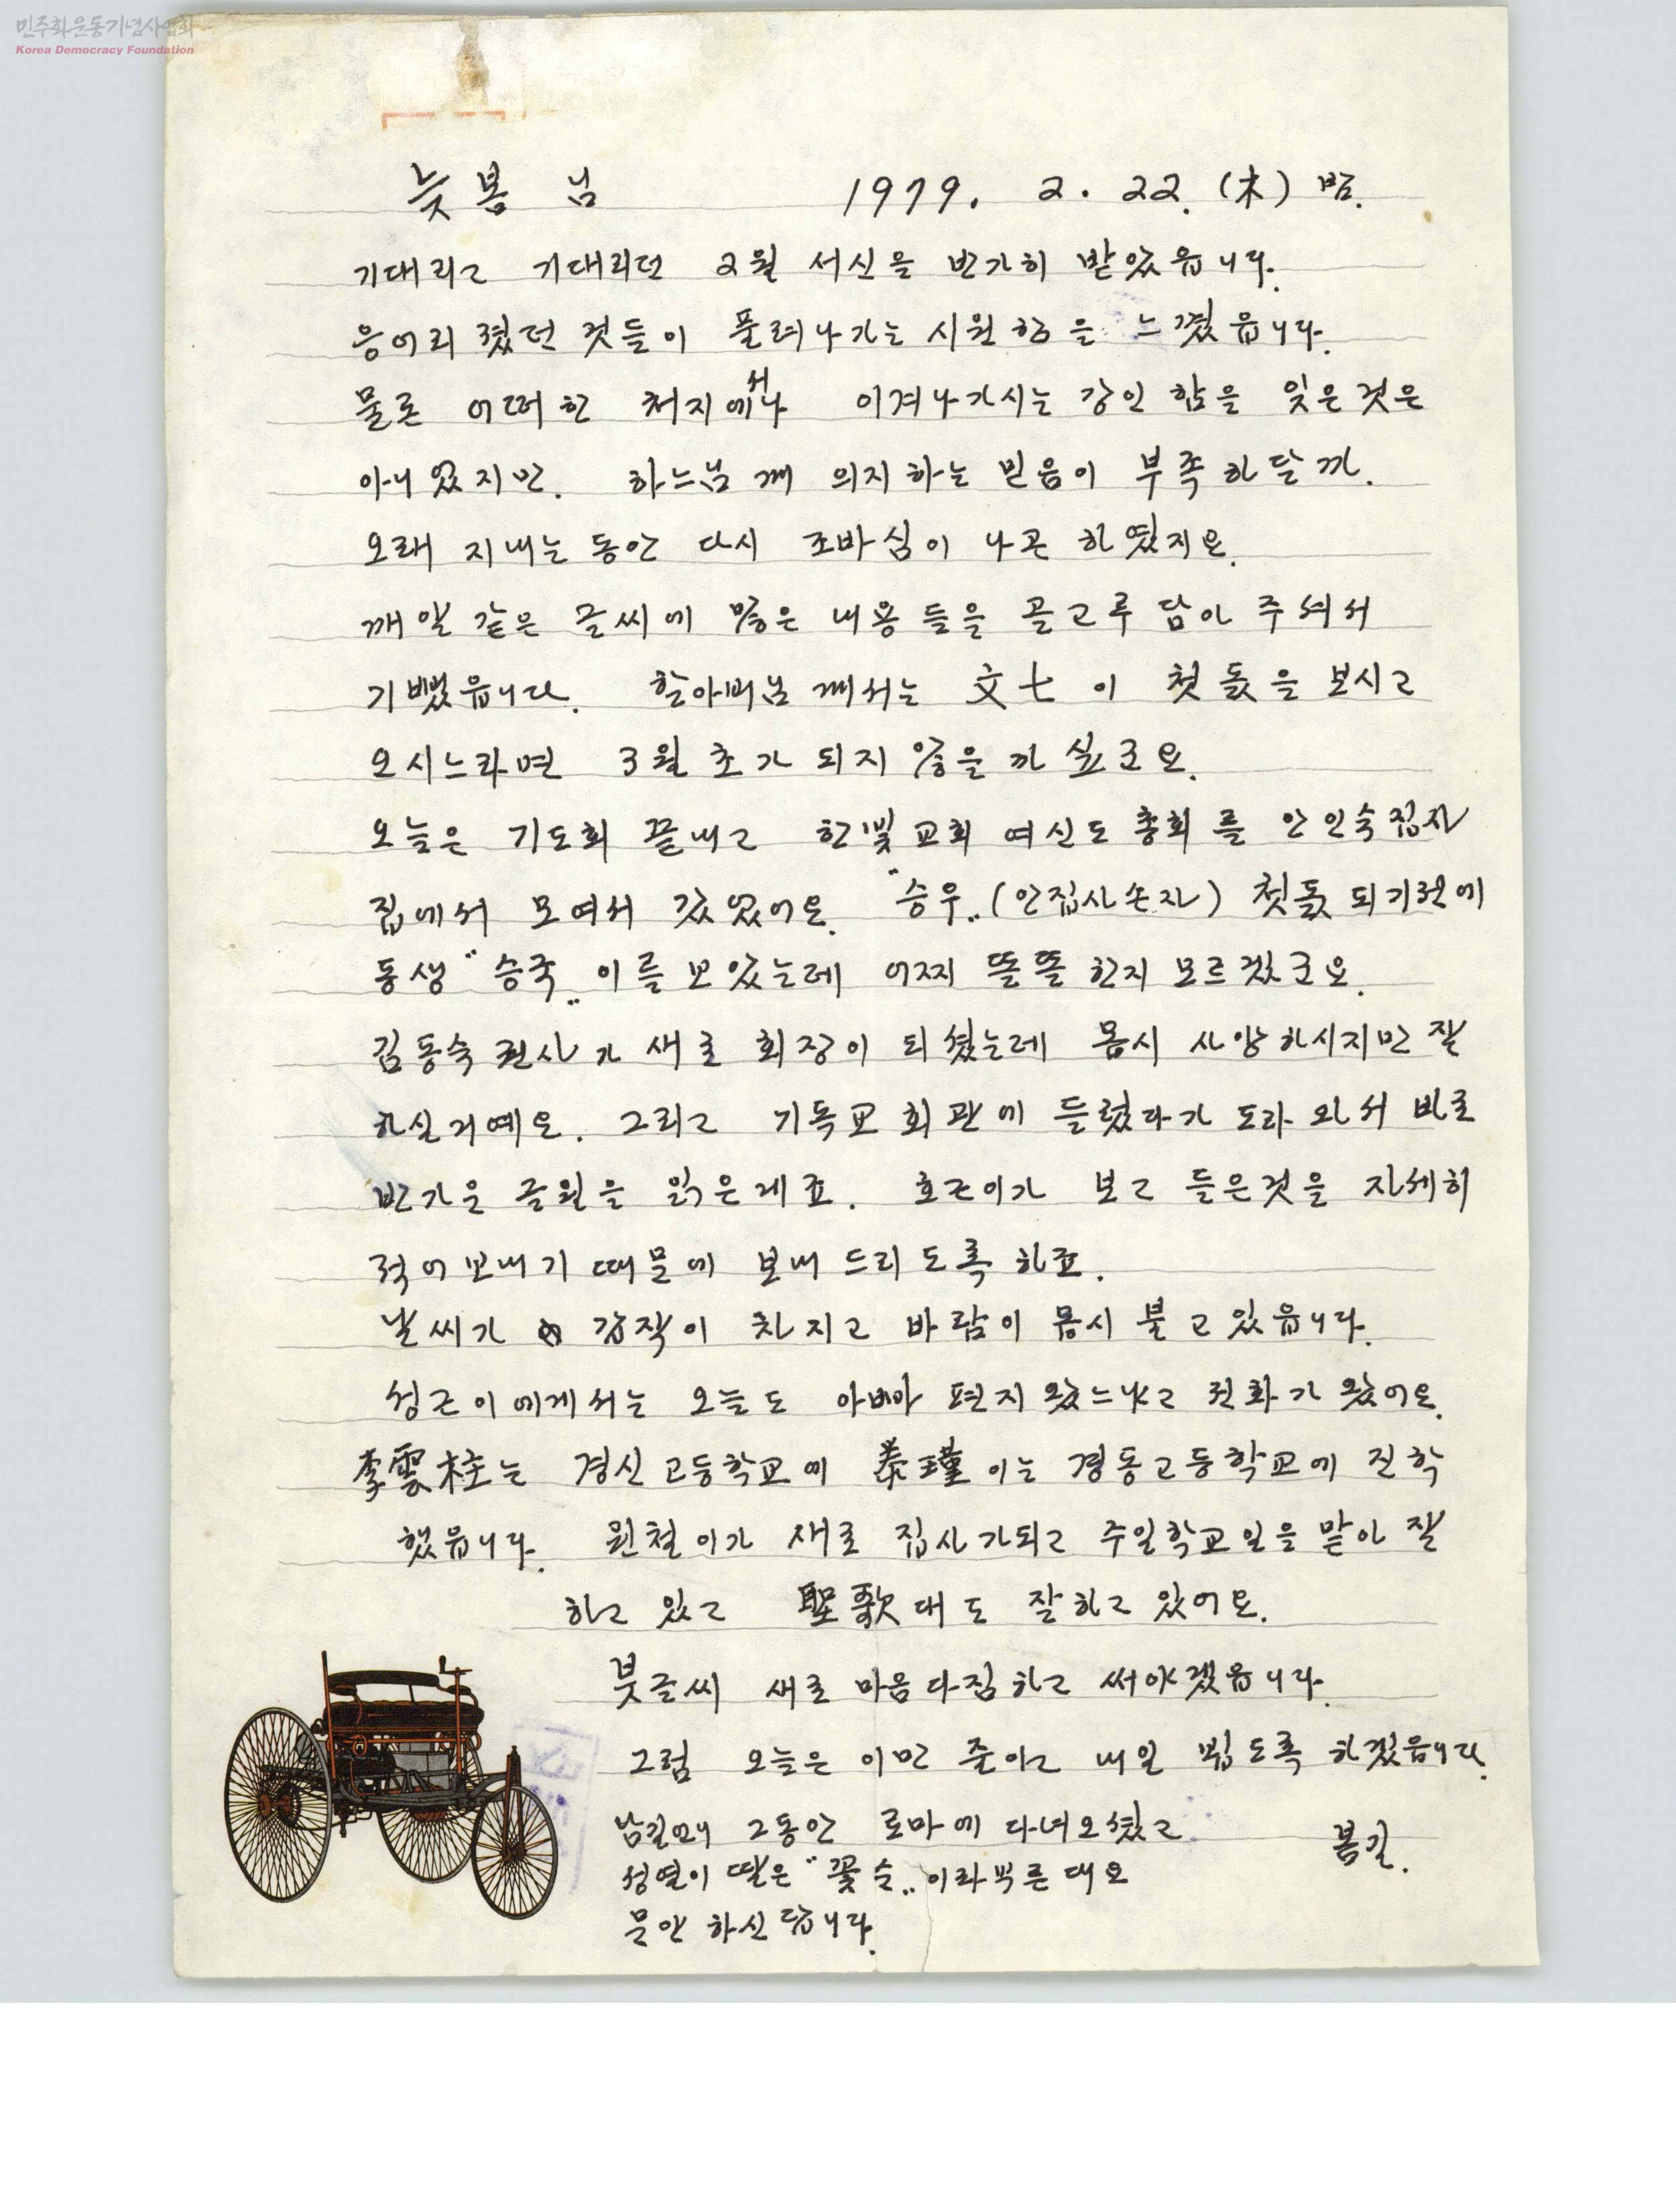 민주화운동기념사업회
Korea Democracy Foundation
늦봄 님 1979. 2. 22. (木) 밤.
기대리고 기대리던 2월 서신을 반가히 받았읍니다.
응어리 졌던 것들이 풀려나가는 시원함을 느꼈읍니다.
물론 어떠한 처지에서나 이겨나가시는 강인함을 잊은것은
아니었지만. 하느님께 의지하는 믿음이 부족하달까.
오래 지내는 동안 다시 조바심이 나곤 하였지요.
깨알 같은 글씨에 많은 내용들을 골고루 담아 주셔서
기뻤읍니다. 할아버님께서는 文七이 첫돐을 보시고
오시느라면 3월 초가 되지 않을까 싶군요.
오늘은 기도회 끝내고 한빛교회 여신도 총회를 안인숙집사
집에서 모여서 갔었어요. "승우" (안집사손자) 첫돐 되기전에
동생 "승국" 이를 보았는데 어찌 똘똘한지 모르겠군요.
김동숙 권사가 새로 회장이 되셨는데 몹시 사양하시지만 잘
하실거예요. 그리고 기독교회관에 들렸다가 도라와서 바로
반가운 글월을 읽은게죠. 호근이가 보고 들은것을 자세히
적어보내기 때문에 보내드리도록 하죠.
날씨가 갑작이 차지고 바람이 몹시 불고 있읍니다.
성근이에게서는 오늘도 아빠 편지 왔느냐고 전화가 왔어요.
李雲柱는 경신고등학교에 泰瑾이는 경동고등학교에 진학
했읍니다. 원철이가 새로 집사가되고 주일학교일을 맡아 잘
하고 있고 聖歌대도 잘하고 있어요.
붓글씨 새로 마음다짐하고 써야겠읍니다.
그럼 오늘은 이만 줄이고 내일 뵙도록 하겠읍니다.
남길언니 그동안 로마에 다녀오셨고 봄길.
성열이 딸은 "꽃순" 이라 부른대요
문안 하신답니다.